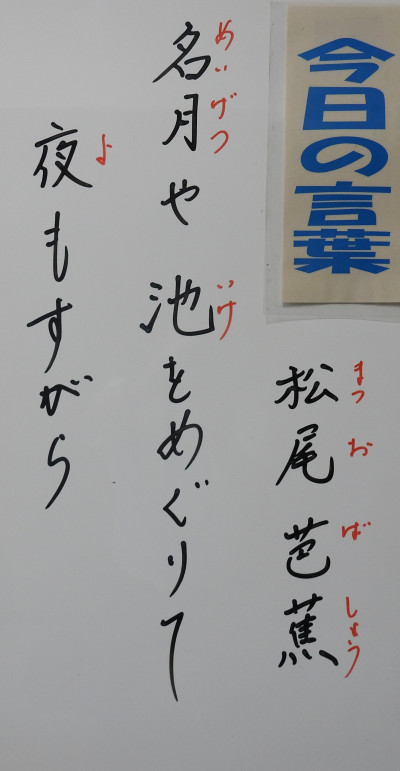 今日の言葉
松尾芭蕉
まつおばしょう
名月や 池をめぐりて
めいげつ いけ
夜もすがら
よ